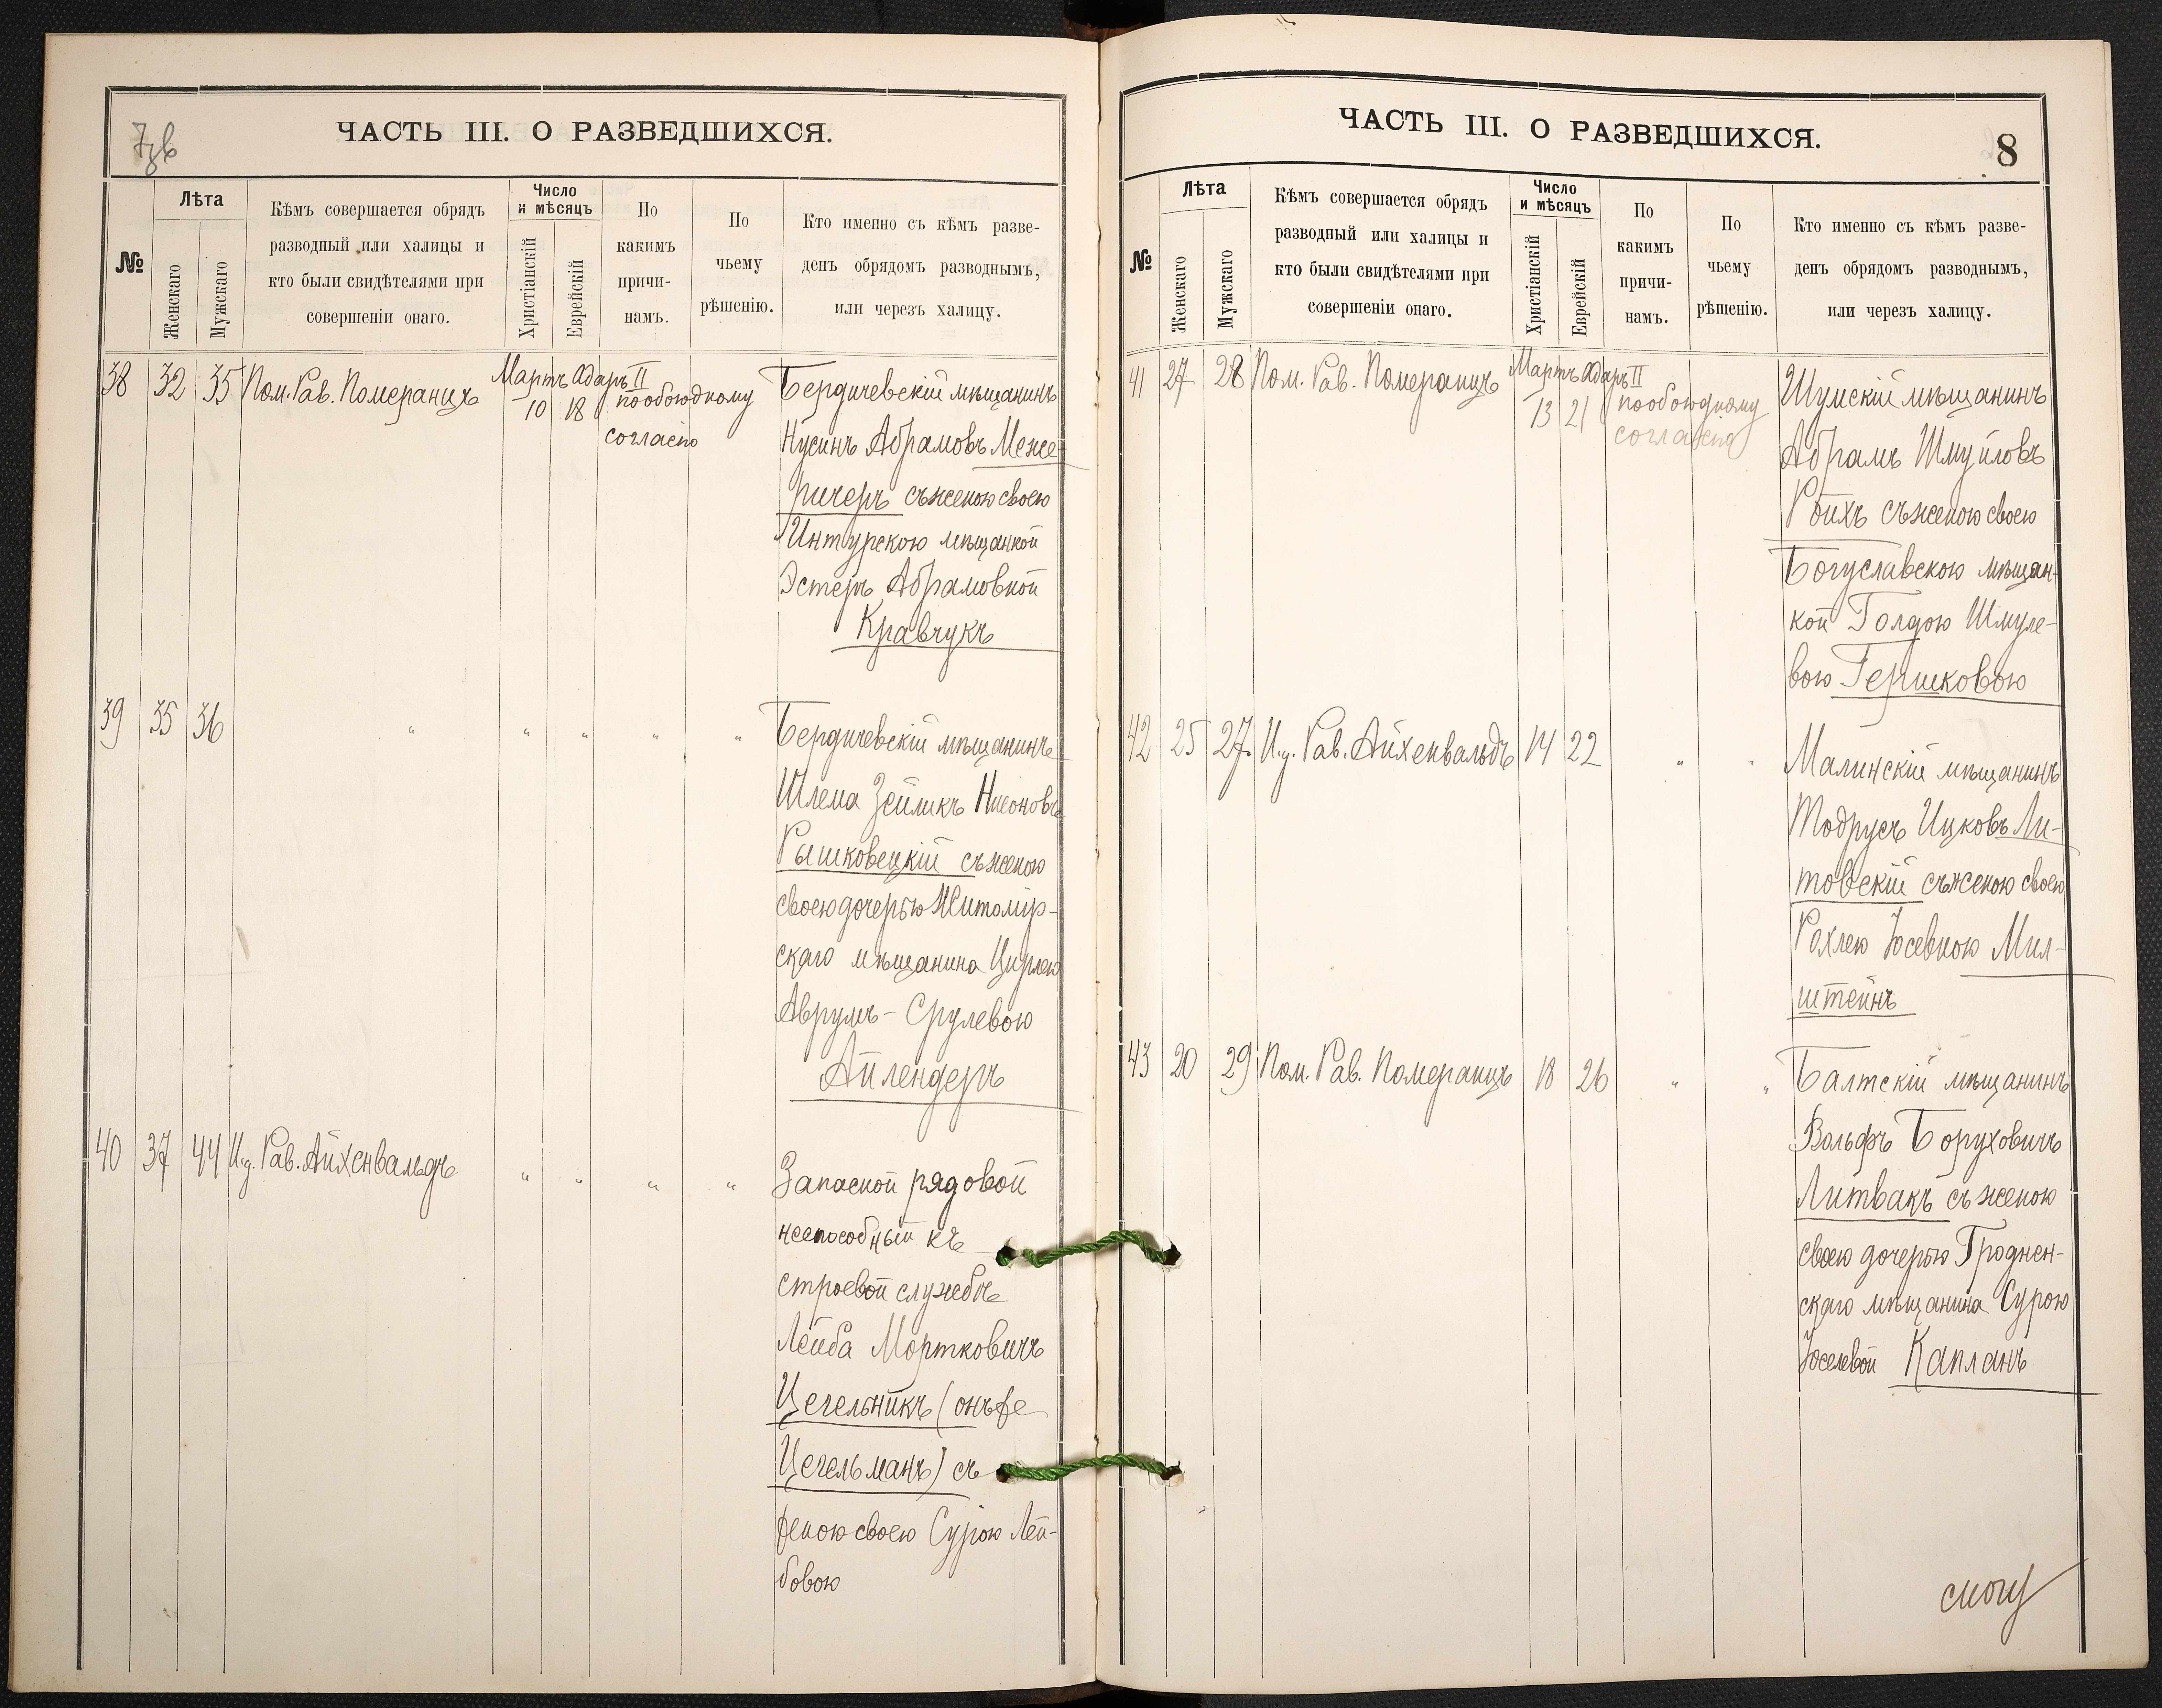 7зв
ЧАСТЬ III. О РАЗВЕДШИХСЯ.
№
Лѣта
Женскаго
Мужскаго
Кѣмъ совершается обрядъ
разводный или халицы и
кто были свидѣтелями при
совершеніи онаго.
Число
и мѣсяцъ
Христіанскій
Еврейскій
По
какимъ
причи-
намъ.
По
чьему
рѣшенію.
Кто именно съ кѣмъ разве-
денъ обрядомъ разводнымъ,
или черезъ халицу.
38 32 35 Пом. Рав. Померанцъ
Мартъ Адаръ II
10 18
по обоюдному
согласію
Бердичевскій мѣщанинъ
Нусинъ Абрамовъ Меже-
ричеръ съ женою своею
Интурскою мѣщанкой
Эстеръ Абрамовной
Кравчукъ
39 35 36 " " " " "
Бердичевскій мѣщанинъ
Шлема Зейликъ Нисоновъ
Рышковецкій съ женою
своею дочерью Житомір-
скаго мѣщанина Цирлею
Аврумъ-Срулевою
Айлендеръ
40 37 44 И.д. Рав. Айхенвальдъ " " " "
Запасной рядовой
неспособный къ
строевой службѣ
Лейба Мортковичъ
Цегельникъ (онъ же
Цегельманъ) съ
женою своею Сурою Лей-
бовою
ЧАСТЬ III. О РАЗВЕДШИХСЯ.
8
№
Лѣта
Женскаго
Мужскаго
Кѣмъ совершается обрядъ
разводный или халицы и
кто были свидѣтелями при
совершеніи онаго.
Число
и мѣсяцъ
Христіанскій
Еврейскій
По
какимъ
причи-
намъ.
По
чьему
рѣшенію.
Кто именно съ кѣмъ разве-
денъ обрядомъ разводнымъ,
или черезъ халицу.
41 27 28 Пом. Рав. Померанцъ
Мартъ Адаръ II
13 21
по обоюдному
согласію
Шумскій мѣщанинъ
Абрамъ Шмуйловъ
Ройхъ съ женою своею
Богуславскою мѣщан-
кой Голдою Шмуле-
вою Гершковою
42 25 27 И.д. Рав. Айхенвальдъ 14 22 " "
Малинскій мѣщанинъ
Тодрусъ Ицковъ Ли-
товскій съ женою своею
Рохлею Іосевною Мил-
штейнъ
43 20 29 Пом. Рав. Померанцъ 18 26 " "
Балтскій мѣщанинъ
Вольфъ Боруховичъ
Литвакъ съ женою
своею дочерью Гроднен-
скаго мѣщанина Сурою
Іоселевой Капланъ